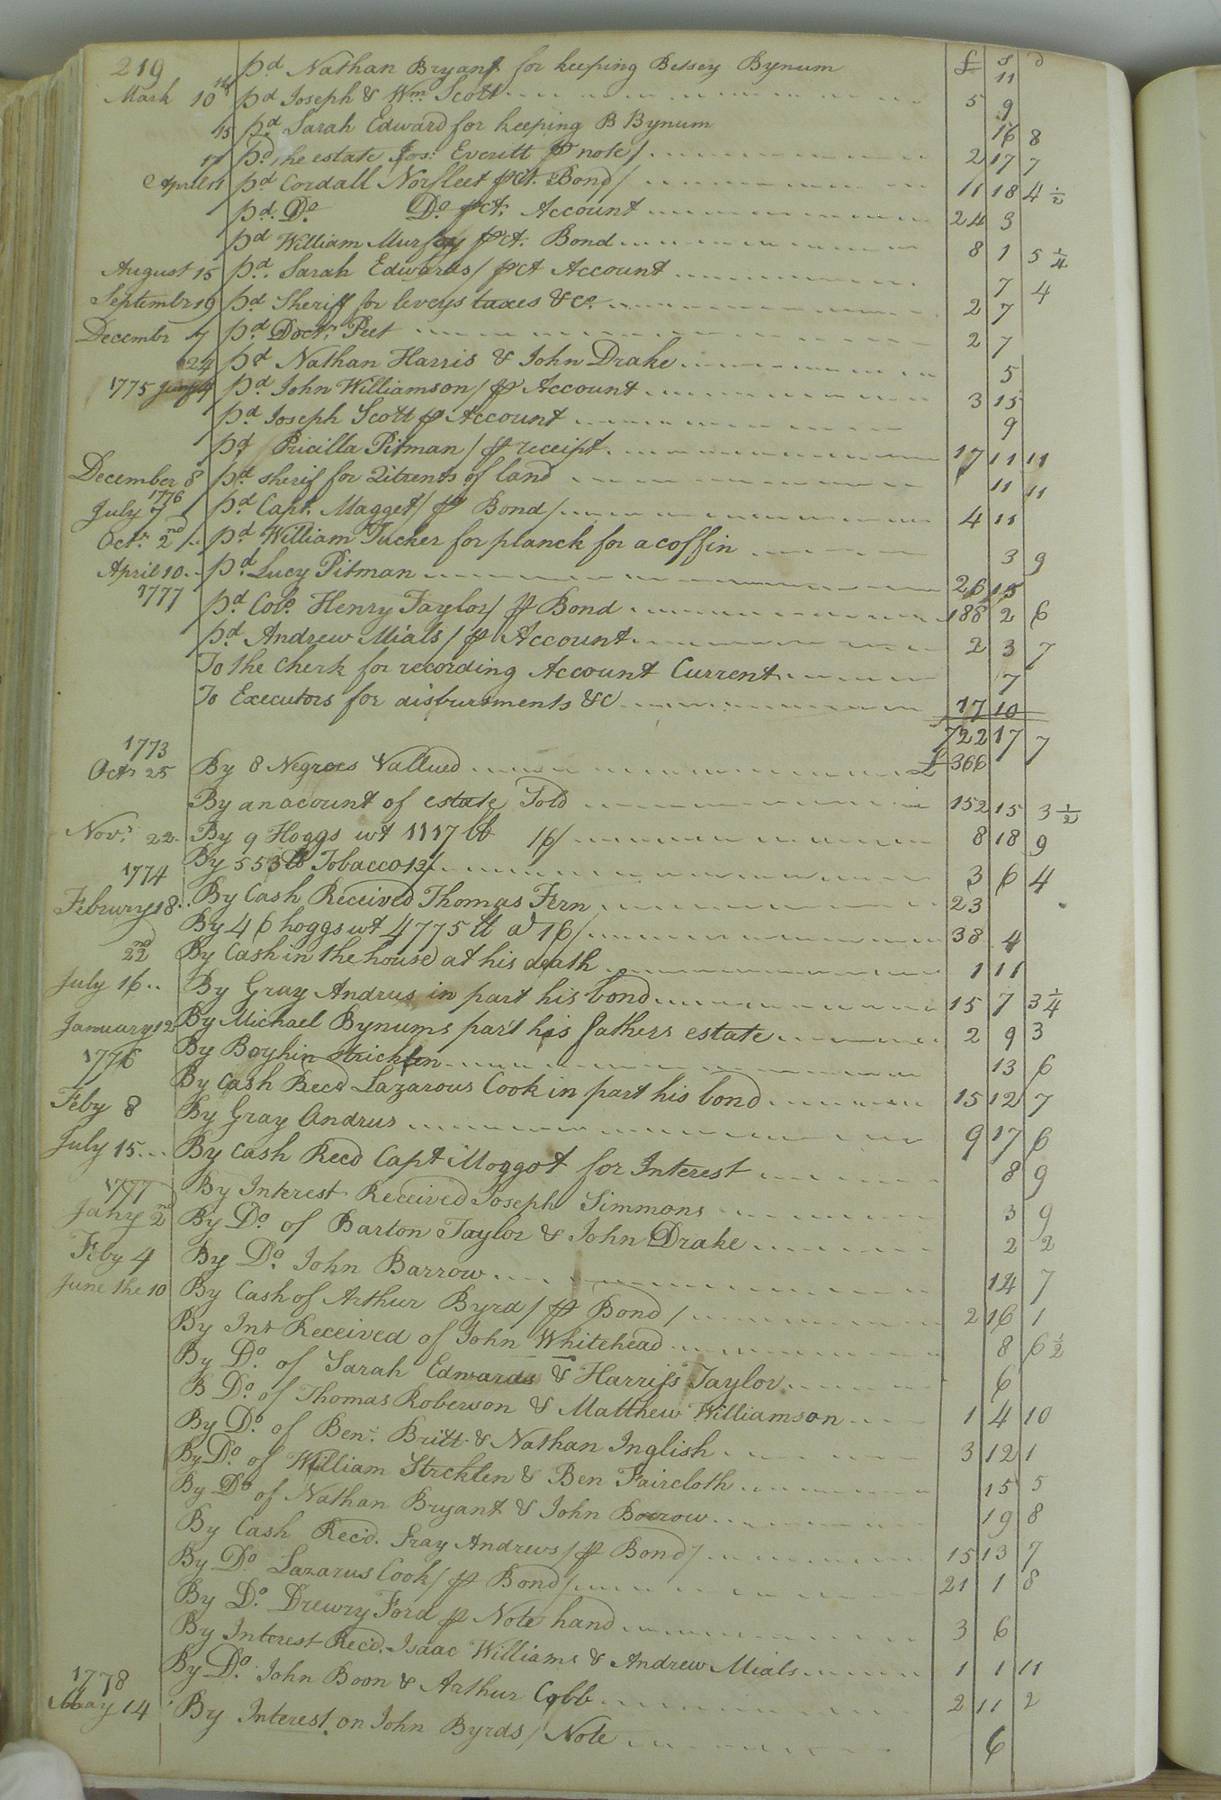 219 pd Nathan Bryant for keeping Betsey Bynum £ s d
11
March 10th pd Joseph & Wm Scott 5 9
15 pd Sarah Edward for keeping B Bynum 16 8
17 pd the estate Jos: Everitt pr note/ 2 17 7
April 11 pd Cordall Norfleet pr ct. Bond/ 11 18 4 1/2
pd. Do Do pr ct. Account 24 3
pd William Murfray pr ct. Bond 8 1 5 1/4
August 15 pd. Sarah Edwards/ pr ct Account 7 4
Septembr 19 pd Sheriff for leveys taxes &c. 2 7
Decembr 7 pd Doctr. Peet 2 7
24 pd Nathan Harris & John Drake 5
1775 pd John Williamson/ pr Account 3 15
pd Joseph Scott pr Account 9
pd Pricilla Pitman/ pr receipt 17 11 11
December 8 pd sherif for Qitrents of land 11 11
1776
July 7 pd Capt. Magget/ pr Bond/ 4 11
Octr. 2nd pd William Tucker for planck for a coffin 3 9
April 10 pd Lucy Pitman 26 15
1777 pd Colo. Henry Taylor/ pr Bond 188 2 6
pd Andrew Mials/ pr Account 2 3 7
To the Cherk for recording Account Current 7
To Executors for disbursments &c 17 10
722 17 7
1773
Octr 25 By 8 Negroes Vallued £ 366
By an acount of estate Sold 152 15 3 1/2
Novr. 22 By 9 Hoggs wt 1117 lb 16/ 8 18 9
By 553 lb Tobacco 12/ 3 6 4
1774
Februry 18 By Cash Received Thomas Fern 23
By 46 hoggs wt 4775 lb a 16/ 38 4
22nd By Cash in the house at his death 1 11
July 16 By Gray Andrus in part his bond 15 7 3 1/4
January 12 By Michael Bynums part his fathers estate 2 9 3
1776 By Boykin Stricklen 13 6
By Cash Recd Lazarous Cook in part his bond 15 12 7
Feby 8 By Gray Andrus 9 17 6
July 15 By Cash Recd Capt Moggot for Interest 8 9
1777 By Interest Received Joseph Simmons 3 9
Jany 2nd By Do. of Barton Taylor & John Drake 2 2
Feby 4 By Do. John Barrow 14 7
June the 10 By Cash of Arthur Byrd/ pr Bond/ 2 16 1
By Int Received of John Whitehead 8 6 1/2
By Do. of Sarah Edwards & Harriss Taylor 6
B Do. of Thomas Roberson & Matthew Williamson 1 4 10
By Do. of Ben: Britt & Nathan Inglish 3 12 1
By Do. of William Strcklen & Ben Faircloth 15 5
By Do of Nathan Bryant & John Borrow 19 8
By Cash Recd. Gray Andrews/ pr Bond/ 15 13 7
By Do Lazarus Cook/ pr Bond/ 21 1 8
By Do. Drewry Ford pr Note hand 3 6
By Interest Recd. Isaac Williams & Andrew Mials 1 1 11
By Do. John Boon & Arthur Cobb 2 11 2
1778
May 14 By Interest on John Byrds/ Note 6